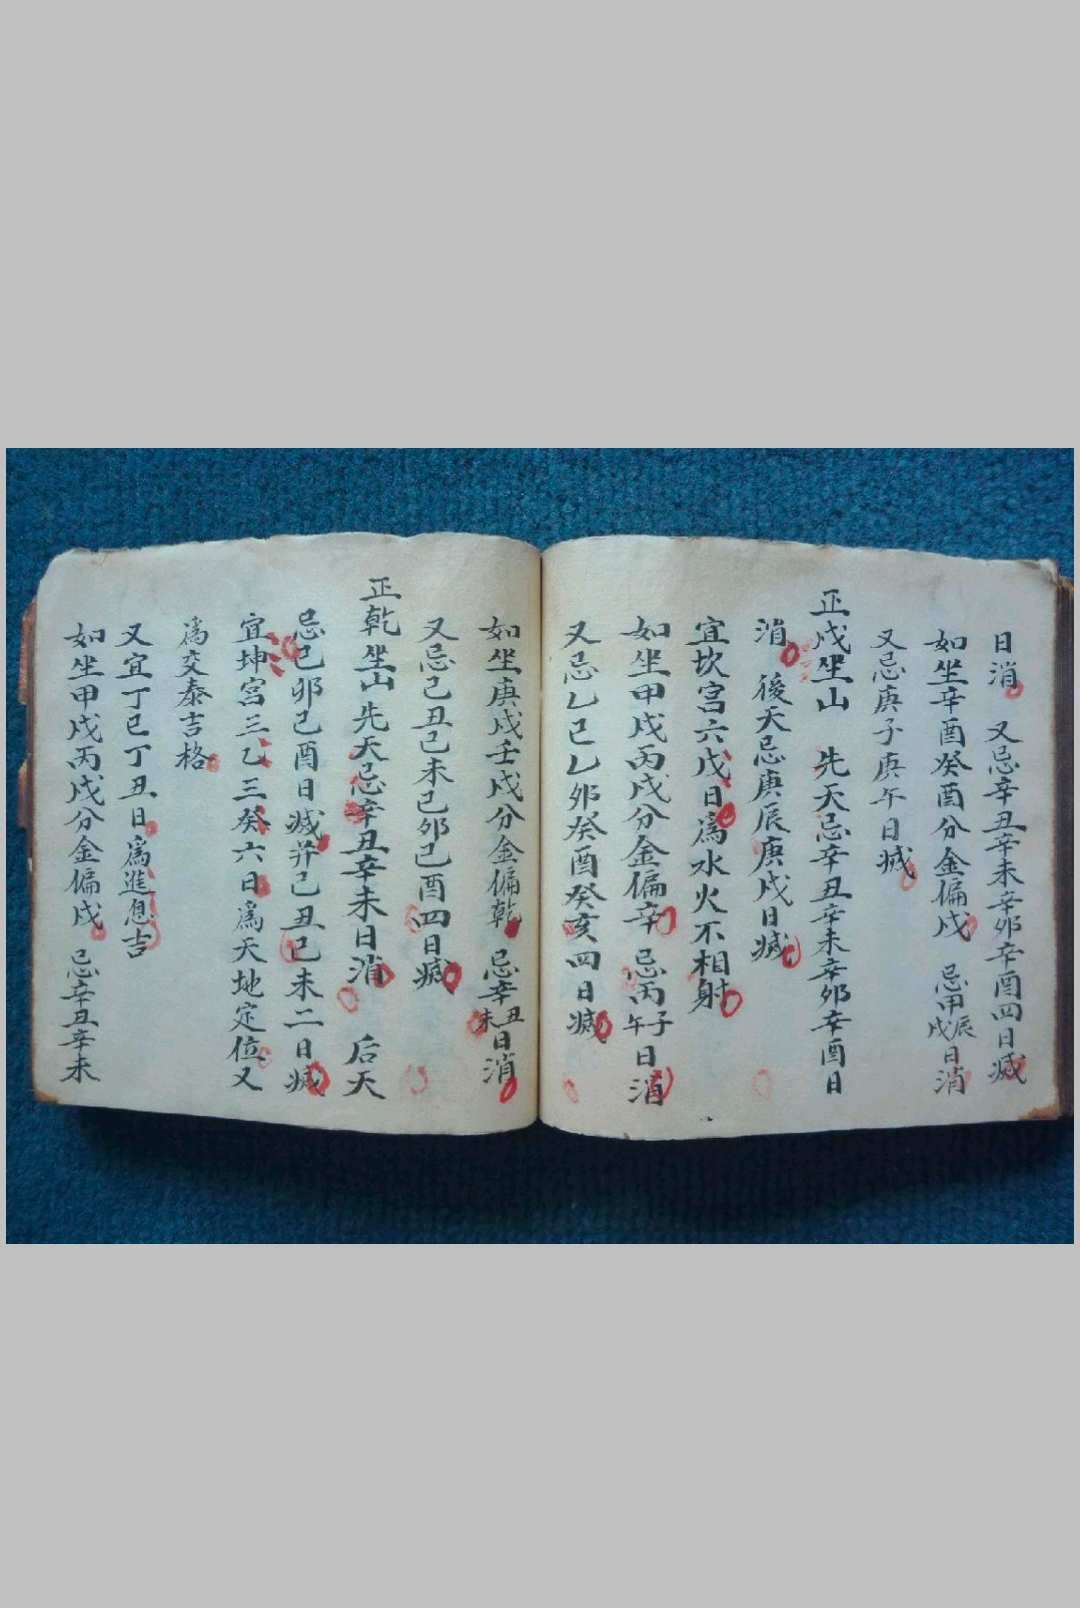 日消　又忌辛丑辛未辛卯辛酉四日滅
如坐辛酉癸酉分金偏戌　忌甲辰戌日消
又忌庚子庚午日滅
正戌坐山　先天忌辛丑辛未辛卯辛酉日
消　後天忌庚辰庚戌日滅
宜坎宫六戊日為水火不相射
如坐甲戌丙戌分金偏辛　忌丙子午日消
又忌乙巳乙卯癸酉癸亥四日滅
如坐庚戌壬戌分金偏乾　忌辛丑未日消
又忌己丑己未己卯己酉四日滅
正乾坐山先天忌辛丑辛未日消　后天
忌己卯己酉日滅并己丑己未二日滅
宜坤宮三乙三癸六日為天地定位又
為交泰吉格
又宜丁巳丁丑日為進息吉
如坐甲戌丙戌分金偏戌　忌辛丑辛未